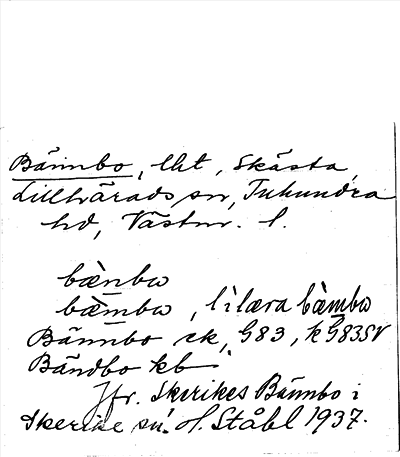 Bännbo, lht, Skästa,
Lillhärads sn, Tuhundra
hd, Västm. l.
bæ̀nbω
bæ̀mbω, lìlæra bæ̀mbω
Bännbo ek, G83, k G83SV
Bändbo kb
Jfr. Skerikes Bännbo i
Skerike sn. H. Ståhl 1937.